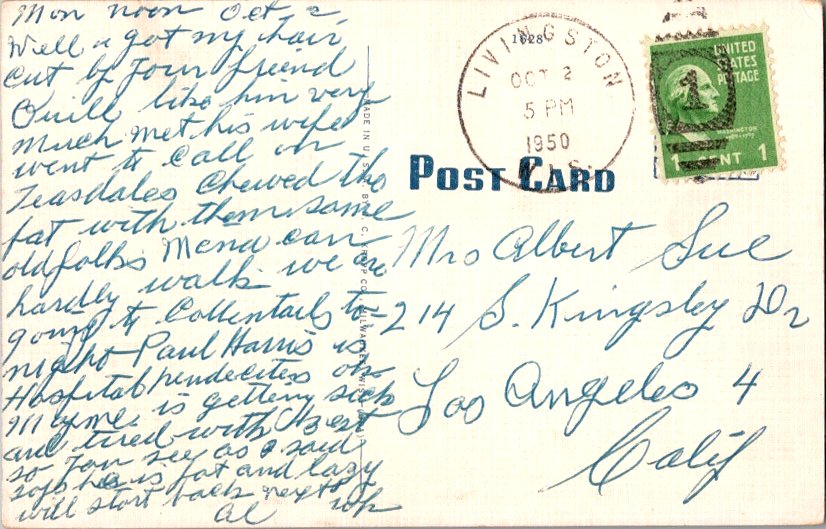 Mon noon Oct 2,
Well I got my hair
cut by your friend
Quill like him very
much met his wife
went to call on
Teasdales Chewed the
fat with them same
old folks Mena can
hardly walk we are
going to Collentails to-
night Paul Harris is
Hospital pendecites ok
Mayme is getting sick
and tired with best
so you see as I said
she is fat and lazy
will start back next
wk
Al
MADE IN U.S.A. BY E. C. KROPP CO., MILWAUKEE, WIS.
1628
LIVINGSTON
OCT 2
5 PM
1950
WIS.
UNITED
STATES
POSTAGE
1
WASHINGTON
1 CENT 1
POST CARD
Mrs Albert Sue
214 S. Kingsley Dr
Los Angeles 4
Calif